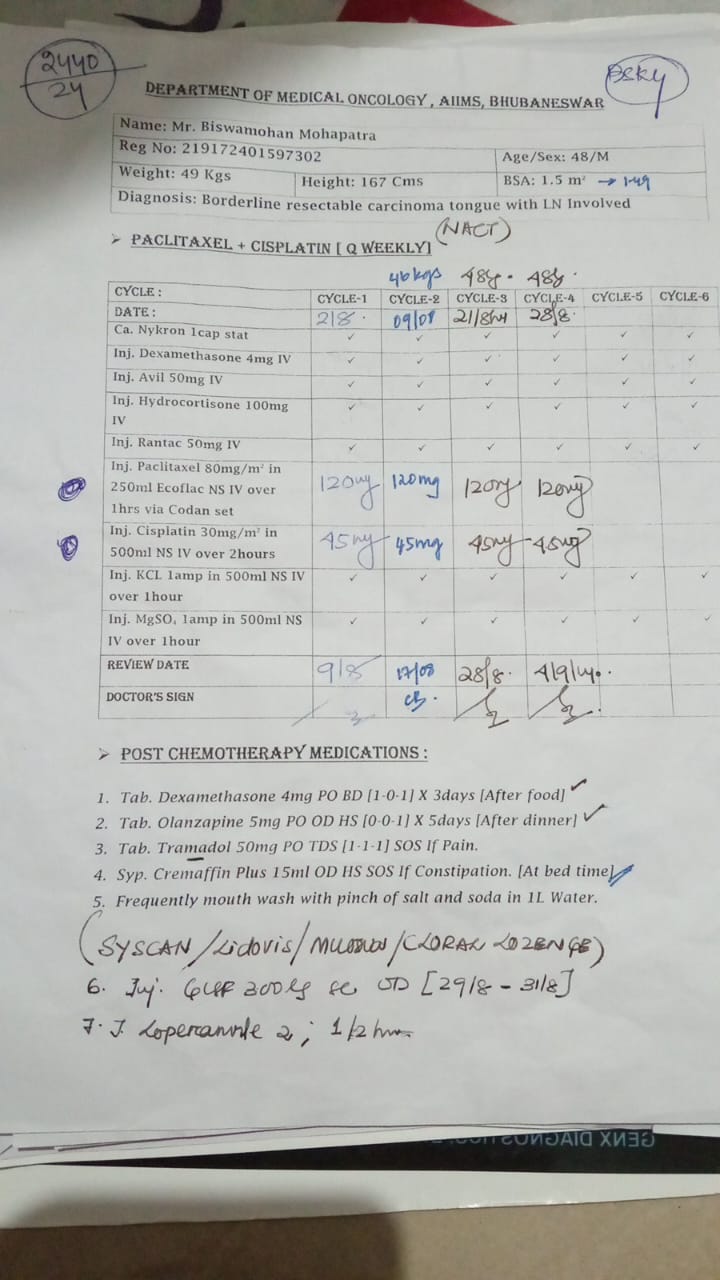 2440
24
BSKY
DEPARTMENT OF MEDICAL ONCOLOGY , AIIMS, BHUBANESWAR
Name: Mr. Biswamohan Mohapatra
Reg No: 219172401597302 Age/Sex: 48/M
Weight: 49 Kgs Height: 167 Cms BSA: 1.5 m² → 1.49
Diagnosis: Borderline resectable carcinoma tongue with LN Involved
(NACT)
➢ PACLITAXEL + CISPLATIN [ Q WEEKLY]
46 kgs 48 48
CYCLE : CYCLE-1 CYCLE-2 CYCLE-3 CYCLE-4 CYCLE-5 CYCLE-6
DATE : 2/8 09/08 21/8/24 28/8
Ca. Nykron 1cap stat ✓ ✓ ✓ ✓ ✓ ✓
Inj. Dexamethasone 4mg IV ✓ ✓ ✓ ✓ ✓ ✓
Inj. Avil 50mg IV ✓ ✓ ✓ ✓ ✓ ✓
Inj. Hydrocortisone 100mg ✓ ✓ ✓ ✓ ✓ ✓
IV
Inj. Rantac 50mg IV ✓ ✓ ✓ ✓ ✓ ✓
Inj. Paclitaxel 80mg/m² in
250ml Ecoflac NS IV over 120mg 120mg 120mg 120mg
1hrs via Codan set
Inj. Cisplatin 30mg/m² in 45mg 45mg 45mg 45mg
500ml NS IV over 2hours
Inj. KCL 1amp in 500ml NS IV ✓ ✓ ✓ ✓ ✓ ✓
over 1hour
Inj. MgSO₄ 1amp in 500ml NS ✓ ✓ ✓ ✓ ✓ ✓
IV over 1hour
REVIEW DATE 9/8 17/08 28/8 4/9/24
DOCTOR'S SIGN
➢ POST CHEMOTHERAPY MEDICATIONS :
1. Tab. Dexamethasone 4mg PO BD [1-0-1] X 3days [After food] ✓
2. Tab. Olanzapine 5mg PO OD HS [0-0-1] X 5days [After dinner] ✓
3. Tab. Tramadol 50mg PO TDS [1-1-1] SOS If Pain.
4. Syp. Cremaffin Plus 15ml OD HS SOS If Constipation. [At bed time] ✓
5. Frequently mouth wash with pinch of salt and soda in 1L Water.
(SYSCAN/Lidovis/ /CLORAL LOZENGE)
6. Inj. GCSF 300 sc OD [29/8 - 31/8]
7. T. Loperamide 2 ; 1/2
GENX DIAGNOSTICS